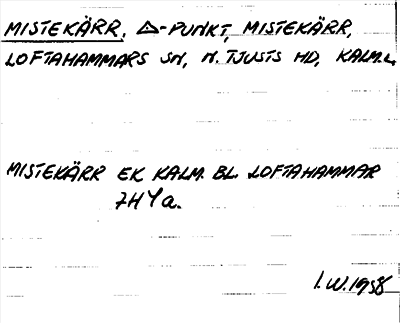 MISTEKÄRR, △-PUNKT, MISTEKÄRR,
LOFTAHAMMARS SN, N. TJUSTS HD, KALM.L.
MISTEKÄRR EK KALM. BL. LOFTAHAMMAR
7H Y a.
I.W. 1958